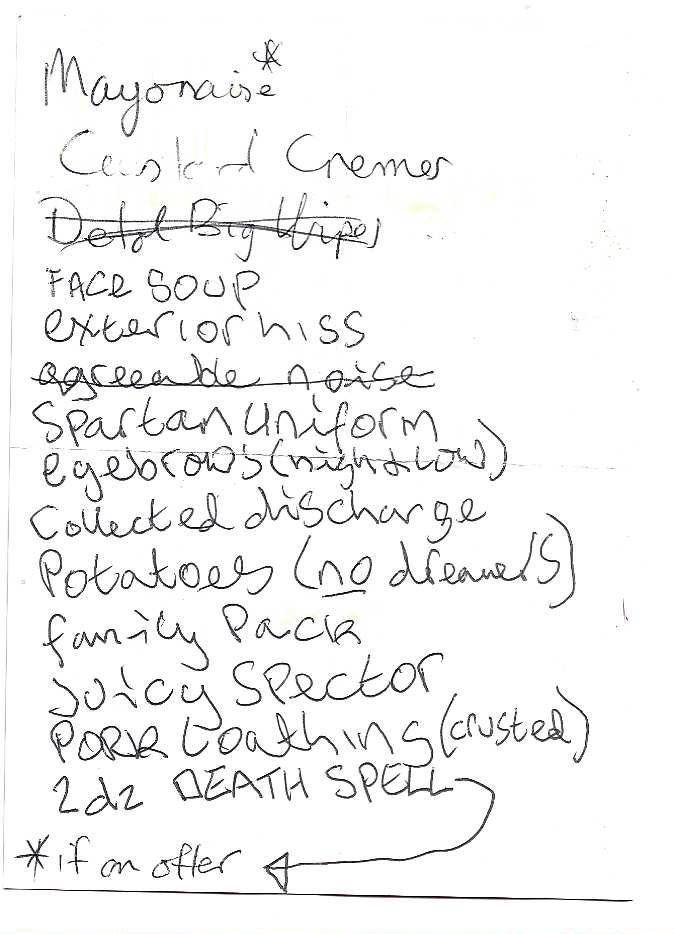 Mayonaise*
Custard Cremes
Detol Big Wipes
FACE SOUP
exterior hiss
agreeable noise
Spartan Uniform
eyebrows (night & low)
Collected discharge
Potatoes (no dreamers)
family Pack
Juicy Spector
PORK Loathing (crusted)
2dz DEATH SPELL
*if on offer